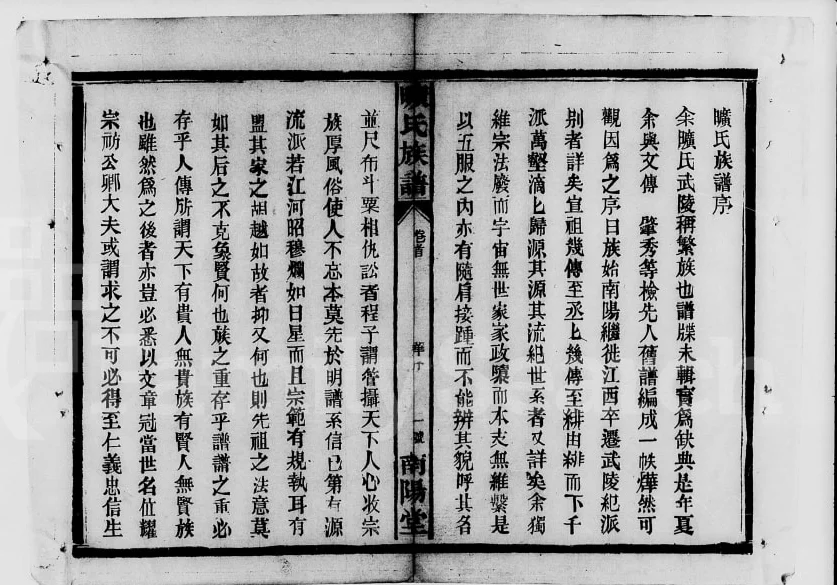 曠氏族譜序
余曠氏武陵稱繁族也譜牒未輯實為缺典是年夏
余與文傳 肇秀等檢先人舊譜編成一帙燁然可
觀因為之序曰族始南陽繼徙江西卒遷武陵紀派
別者詳矣宣祖幾傳至丞丞幾傳至緋由緋而下千
派萬壑滴滴歸源其源其流紀世系者又詳矣余獨
維宗法廢而宇宙無世家家政隳而本支無維繫是
以五服之內亦有隨肩接踵而不能辨其貌呼其名
曠氏族譜
卷首
一號
南陽堂
並尺布斗粟相仇訟者程子謂管攝天下人心收宗
族厚風俗使人不忘本莫先於明譜系信已第有源
流派若江河昭穆爛如日星而且宗範有規執耳有
盟其家之胡越如故者抑又何也則先祖之法意莫
如其后之不克象賢何也族之重存乎譜譜之重必
存乎人傳所謂天下有貴人無貴族有賢人無賢族
也雖然為之後者亦豈必悉以文章冠當世名位耀
宗祊公卿大夫或謂求之不可必得至仁義忠信生